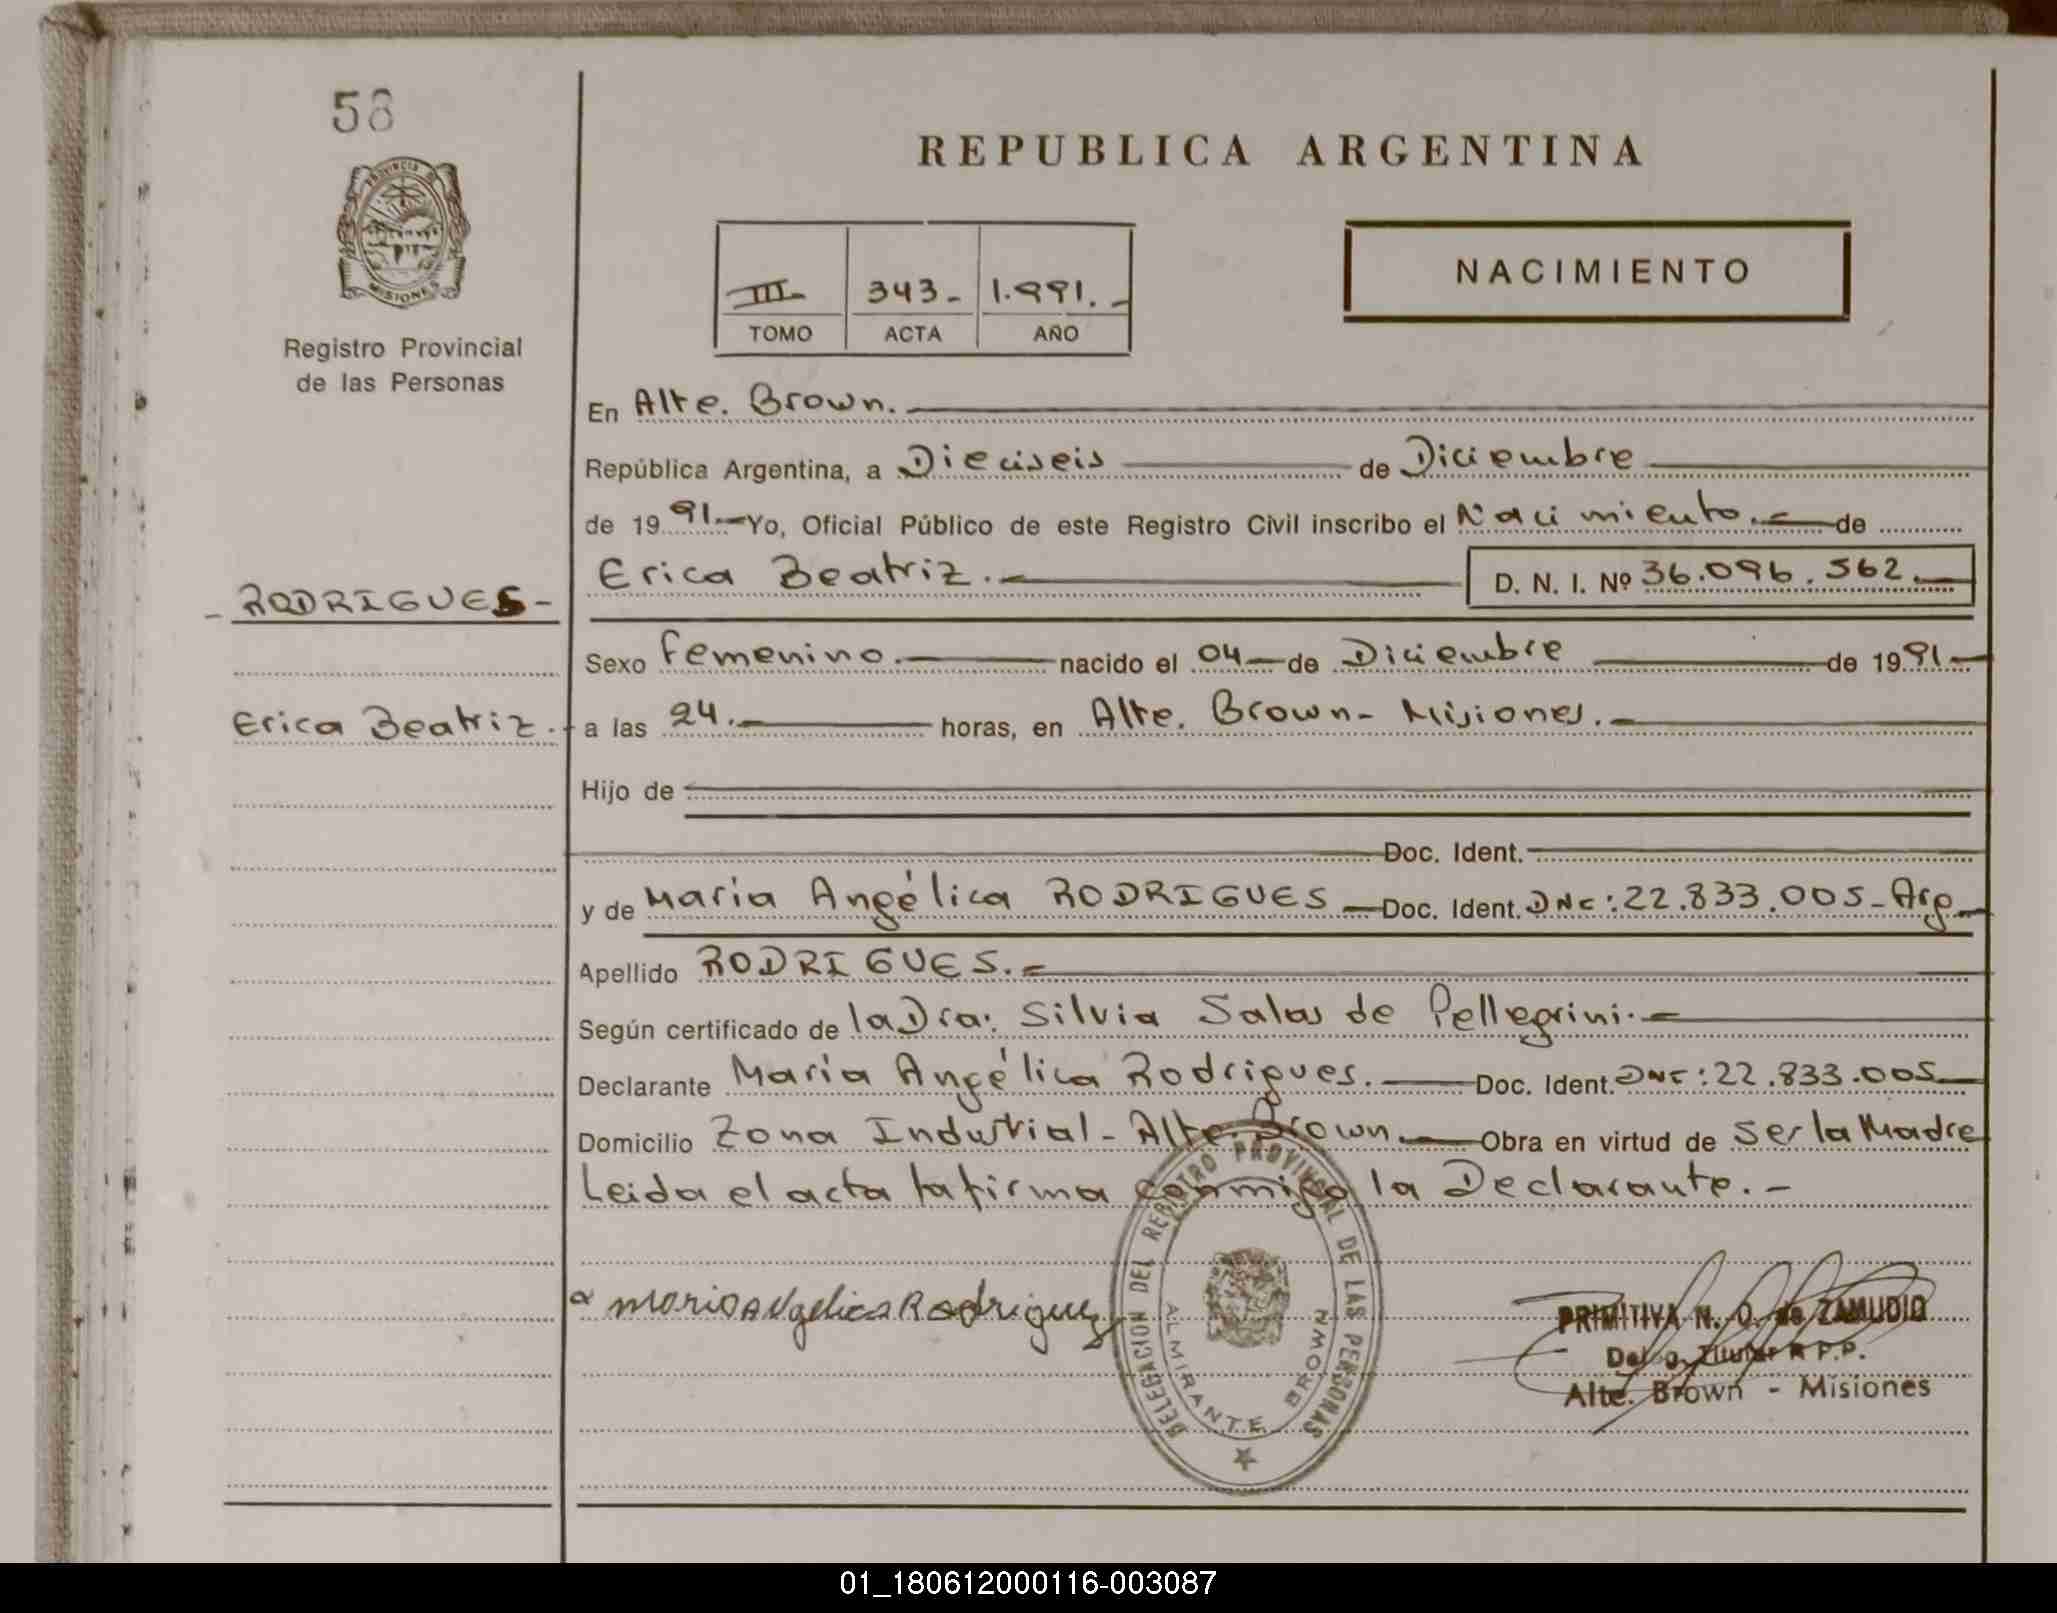 58
PROVINCIA DE
MISIONES
Registro Provincial
de las Personas
REPUBLICA ARGENTINA
III 343- 1.991.-
TOMO ACTA AÑO
NACIMIENTO
En Alte. Brown.
República Argentina, a Dieciseis de Diciembre
de 1991.- Yo, Oficial Público de este Registro Civil inscribo el Nacimiento.- de
Erica Beatriz.- D. N. I. Nº 36.096.562.-
- RODRIGUES -
Sexo femenino.- nacido el 04 de Diciembre de 1991-
Erica Beatriz.-
a las 24.- horas, en Alte. Brown- Misiones.-
Hijo de
Doc. Ident.
y de Maria Angélica RODRIGUES - Doc. Ident. DNC: 22.833.005- Arg-
Apellido RODRIGUES.-
Según certificado de la Dra: Silvia Salas de Pellegrini.-
Declarante María Angélica Rodrigues.- Doc. Ident. DNC: 22.833.005-
Domicilio Zona Industrial - Alte. Brown.- Obra en virtud de Ser la Madre
Leida el acta la firma conmigo la Declarante.-
DELEGACION DEL REGISTRO PROVINCIAL DE LAS PERSONAS
ALMIRANTE BROWN
Maria Angelica Rodriguez
PRIMITIVA N. O. de ZAMUDIO
Deleg. Titular R P.P.
Alte. Brown - Misiones
01_180612000116-003087